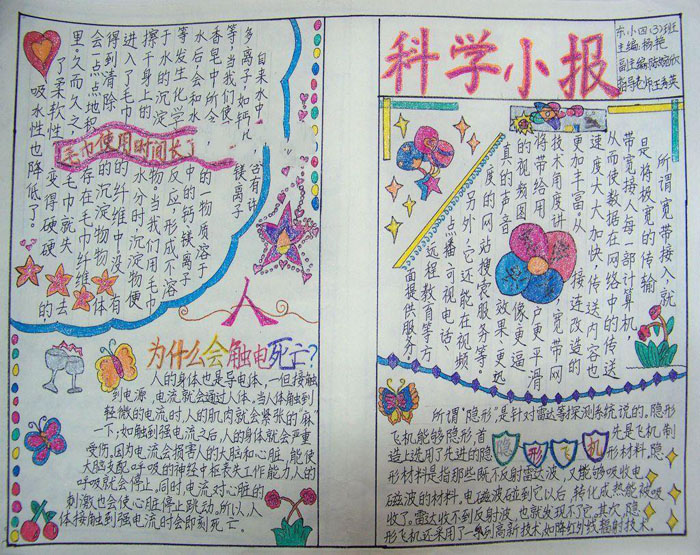 科学小报
东小四(3)班
主编 杨艳
副主编
指导老师王秀英
所谓宽带接入,就
是将极宽的传输
带宽接入每一部计算机,
从而使数据在网络中的传送
速度大大加快,传送内容也
更加丰富。从 接连改造的
技术角度讲 效果更远
将带给用 户更平滑
的视频图 像更逼
真的声音
度的网站搜索服务等
另外,它还能在视频
点播可视电话、
远程教育等方
面提供服务。
所谓“隐形”是针对雷达等探测系统说的。隐形
飞机能够隐形,首 隐形飞机 先是飞机制
造上选用了先进的隐 形材料,隐
形材料是指那些既不反射雷达波,又能够吸收电
磁波的材料,电磁波碰到它以后 转化成热能被吸
收了。雷达收不到反射波,也就发现不了它。其次,隐
形飞机还采用了一系列高新技术,如降红外线辐射技术。
毛巾使用时间长了
自来水中 含有许
多离子,如钙 镁离子
等,当我们使
香皂中所含 的物质溶于
水后会和水 中的钙镁离子
等发生化学 反应,形成不溶
于水的沉淀 物。当我们用毛巾
擦干身上的 水分时,沉淀物便
进入了毛巾 的纤维中没有
得到清除 的沉淀物物体
会一点点地积 存在毛巾纤维的
里,久而久之, 毛巾就失去
了柔软性 变得硬硬
吸水性也降低了。
为什么会触电死亡?
人的身体也是导电体,一但接触
到电源 电流就会通过人体。当人体触到
轻微的电流时,人的肌肉就会紧张的“麻”
一下;如触到强电流之后,人的身体就会严重
受伤,因为电流会损害人的大脑和心脏,能使
大脑支配呼吸的神经中枢丧失工作能力,人的
呼吸就会停止,同时,电流对心脏的
刺激也会使心脏停止跳动。所以,人
体接触到强电流时会即刻死亡。